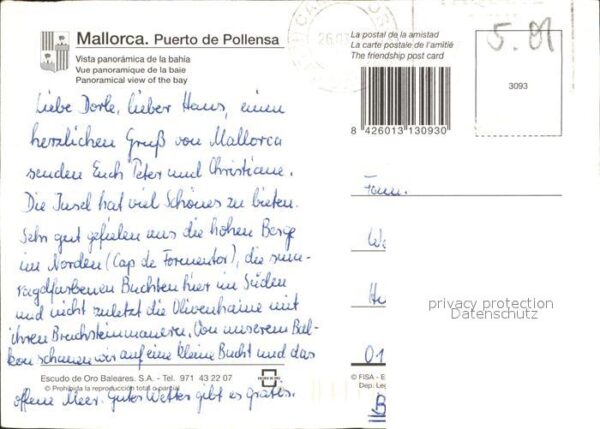 Mallorca. Puerto de Pollensa
Vista panorámica de la bahía
Vue panoramique de la baie
Panoramical view of the bay
La postal de la amistad
La carte postale de l'amitié
The friendship post card
5.01
3093
8 426013 130930
Liebe Dorle, lieber Hans, einen
herzlichen Gruß von Mallorca
senden Euch Peter und Christiane.
Die Insel hat viel Schönes zu bieten.
Sehr gut gefielen uns die hohen Berge
im Norden (Cap de Formentor), die sma-
ragdfarbenen Buchten hier im Süden
und nicht zuletzt die Olivenhaine mit
ihren Bruchsteinmauern. Von unserem Bal-
kon schauen wir auf eine kleine Bucht und das
offene Meer. Gutes Wetter gibt es gratis.
Fam.
We
He
01
privacy protection
Datenschutz
Escudo de Oro Baleares. S.A. - Tel. 971 43 22 07
© Prohibida la reproducción total o parcial
© FISA - E
Dep. Leg